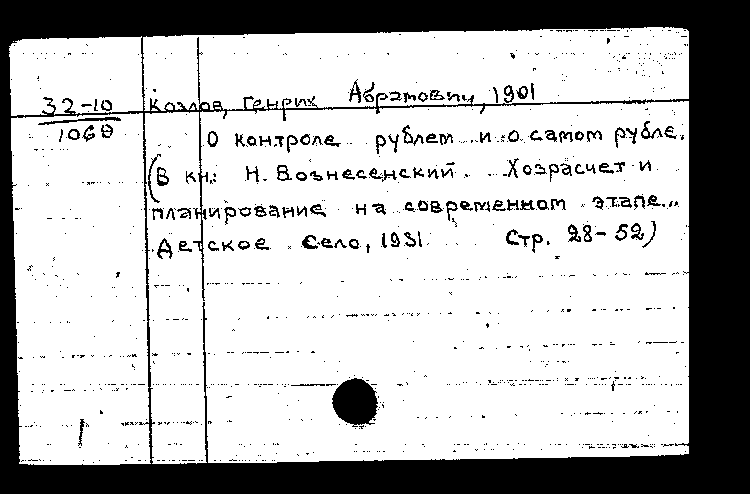 32-10 Козлов, Генрих Абрамович, 1901
1060 О контроле рублем и о самом рубле.
(В кн: Н. Вознесенский. Хозрасчет и
планирование на современном этапе...
Детское Село, 1931 Стр. 28-52)